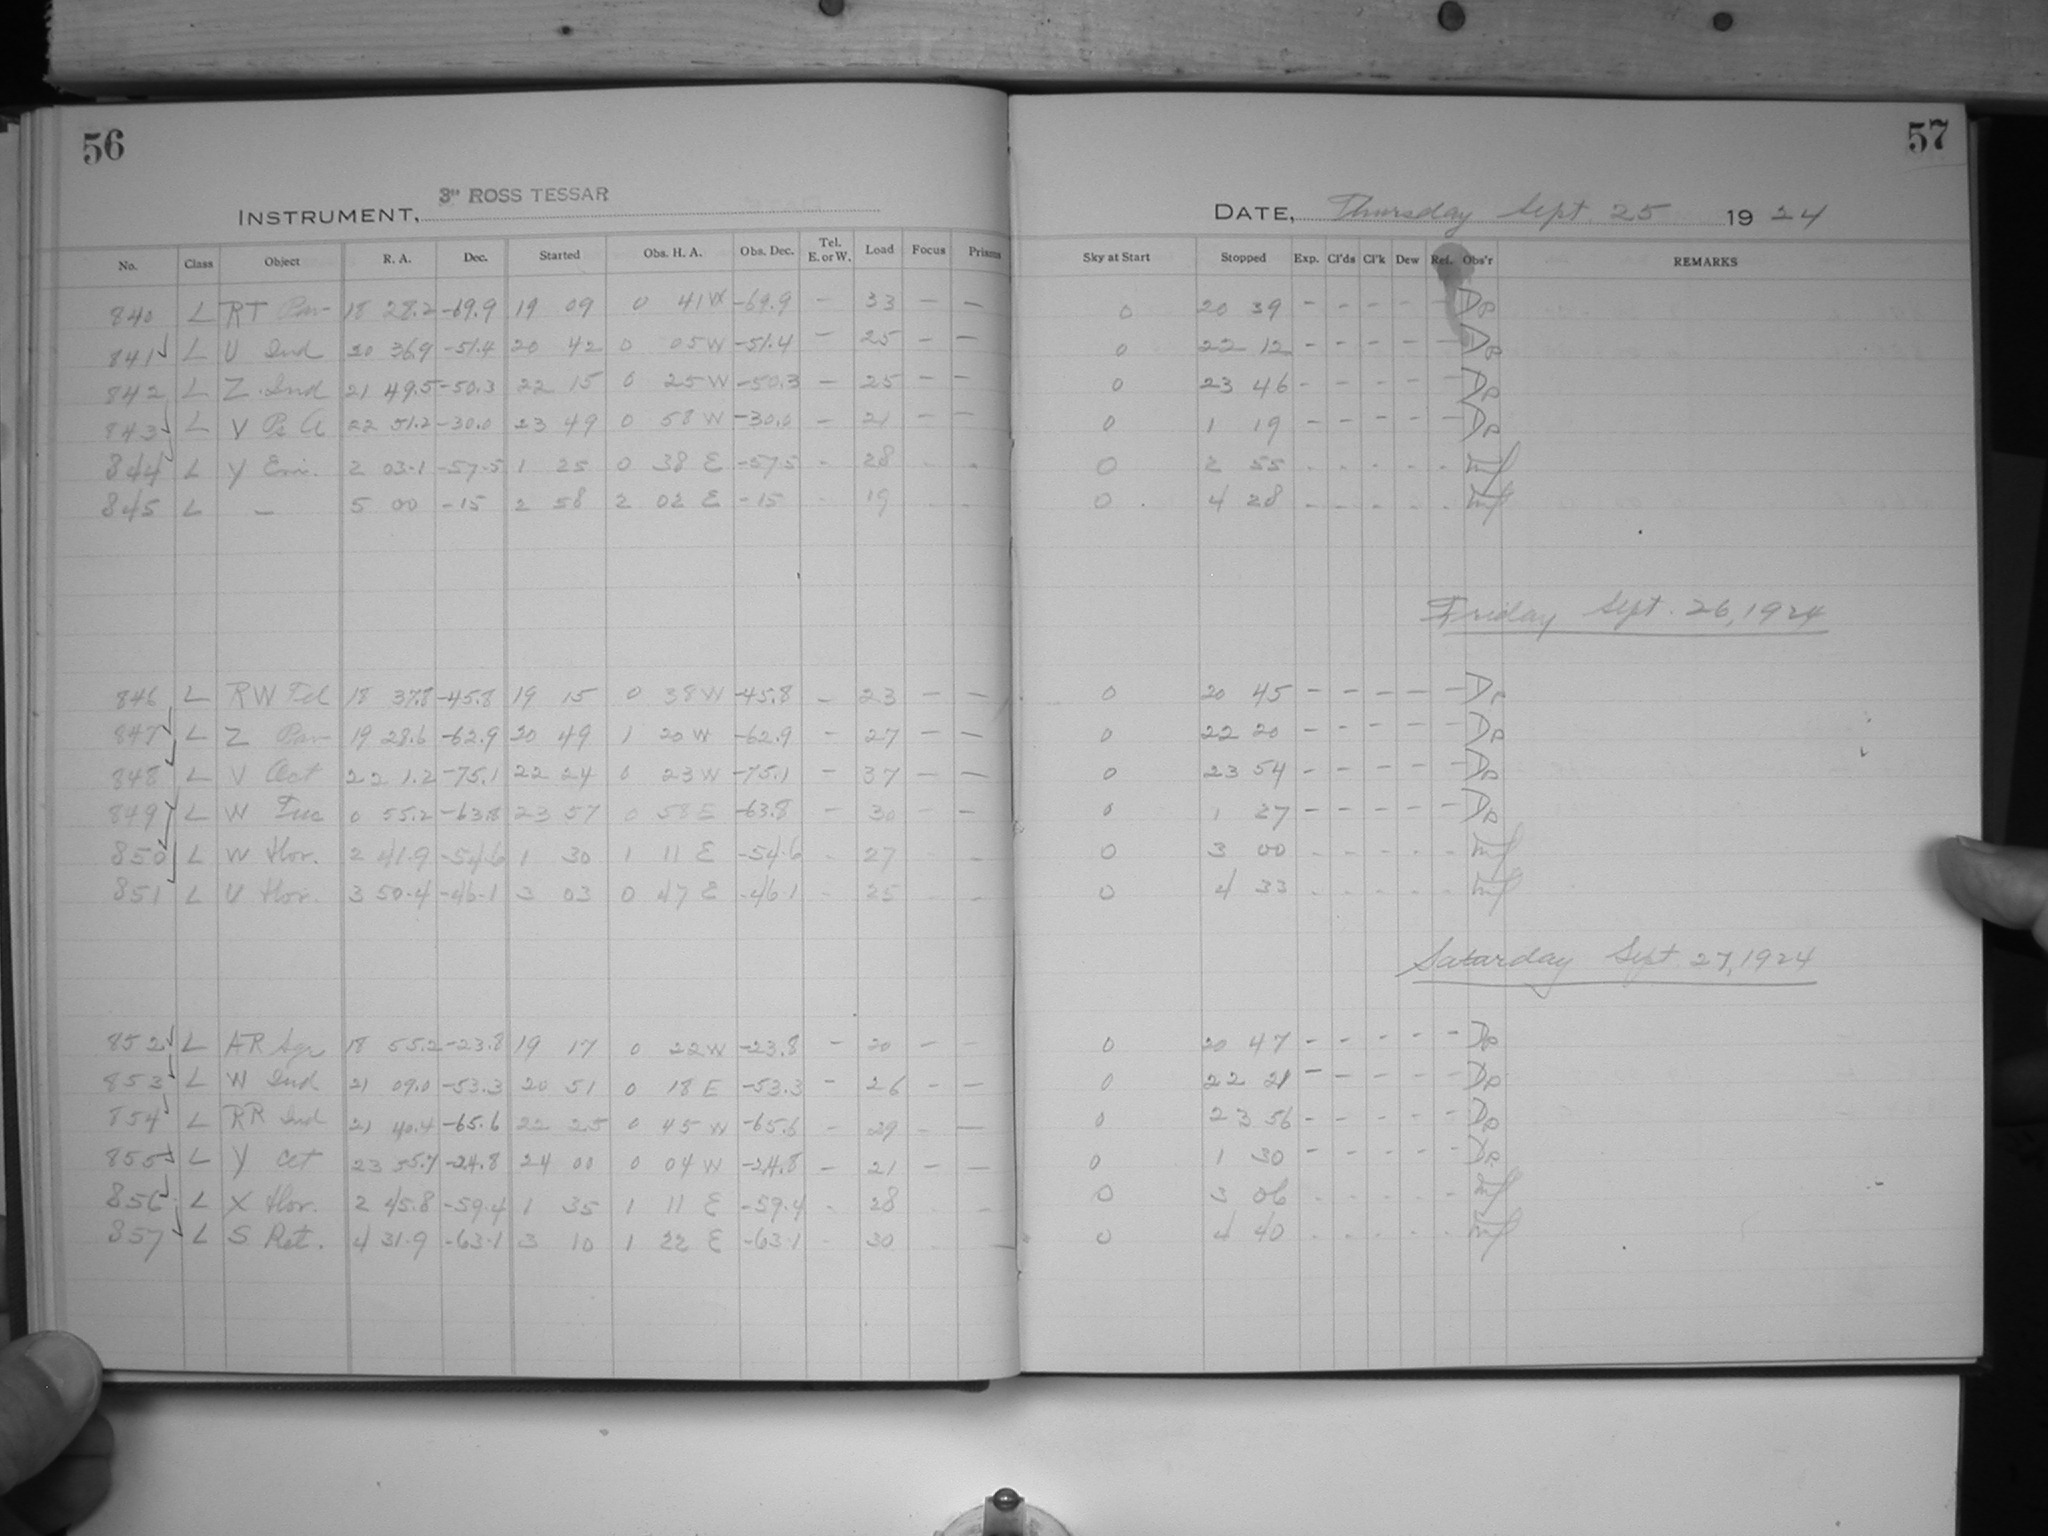 56
INSTRUMENT, 3" ROSS TESSAR
No. Class Object R. A. Dec. Started Obs. H. A. Obs. Dec. Tel. E. or W. Load Focus Prisms
840 L RT Pav 18 28.2 -69.9 19 09 0 41 W -69.9 - 33 - -
841 L U Ind 20 36.9 -51.4 20 42 0 05 W -51.4 - 25 - -
842 L Z Ind 21 49.5 -50.3 22 15 0 25 W -50.3 - 25 - -
843 L V Ps A 22 51.2 -30.0 23 49 0 58 W -30.0 - 21 - -
844 L Y Eri. 2 03.1 -57.5 1 25 0 38 E -57.5 - 28 - -
845 L - 5 00 -15 2 58 2 02 E -15 - 19 - -
846 L RW Tel 18 37.8 -45.8 19 15 0 38 W -45.8 - 23 - -
847 L Z Pav 19 28.6 -62.9 20 49 1 20 W -62.9 - 27 - -
848 L V Oct 22 1.2 -75.1 22 24 0 23 W -75.1 - 37 - -
849 L W Tuc 0 55.2 -63.8 23 57 0 58 E -63.8 - 30 - -
850 L W Hor. 2 41.9 -54.6 1 30 1 11 E -54.6 - 27 - -
851 L U Hor. 3 50.4 -46.1 3 03 0 47 E -46.1 - 25 - -
852 L AR Sgr 18 55.2 -23.8 19 17 0 22 W -23.8 - 20 - -
853 L W Ind 21 09.0 -53.3 20 51 0 18 E -53.3 - 26 - -
854 L RR Ind 21 40.4 -65.6 22 25 0 45 W -65.6 - 29 - -
855 L Y 23 55.7 -24.8 24 00 0 04 W -24.8 - 21 - -
856 L X Hor. 2 45.8 -59.4 1 35 1 11 E -59.4 - 28 - -
857 L S Ret. 4 31.9 -63.1 3 10 1 22 E -63.1 - 30 - -
57
DATE, Thursday Sept. 25 1924
Sky at Start Stopped Exp. Cl'ds Cl'k Dew Ref. Obs'r REMARKS
0 20 39 - - - - - Dp
0 22 12 - - - - - Dp
0 23 46 - - - - - Dp
0 1 19 - - - - - Dp
0 2 55 - - - - -
0 4 28 - - - - -
Friday Sept. 26, 1924
0 20 45 - - - - - Dp
0 22 20 - - - - - Dp
0 23 54 - - - - - Dp
0 1 27 - - - - - Dp
0 3 00 - - - - -
0 4 33 - - - - -
Saturday Sept 27, 1924
0 20 47 - - - - - Dp
0 22 21 - - - - - Dp
0 23 56 - - - - - Dp
0 1 30 - - - - - Dp
0 3 06 - - - - -
0 4 40 - - - - -